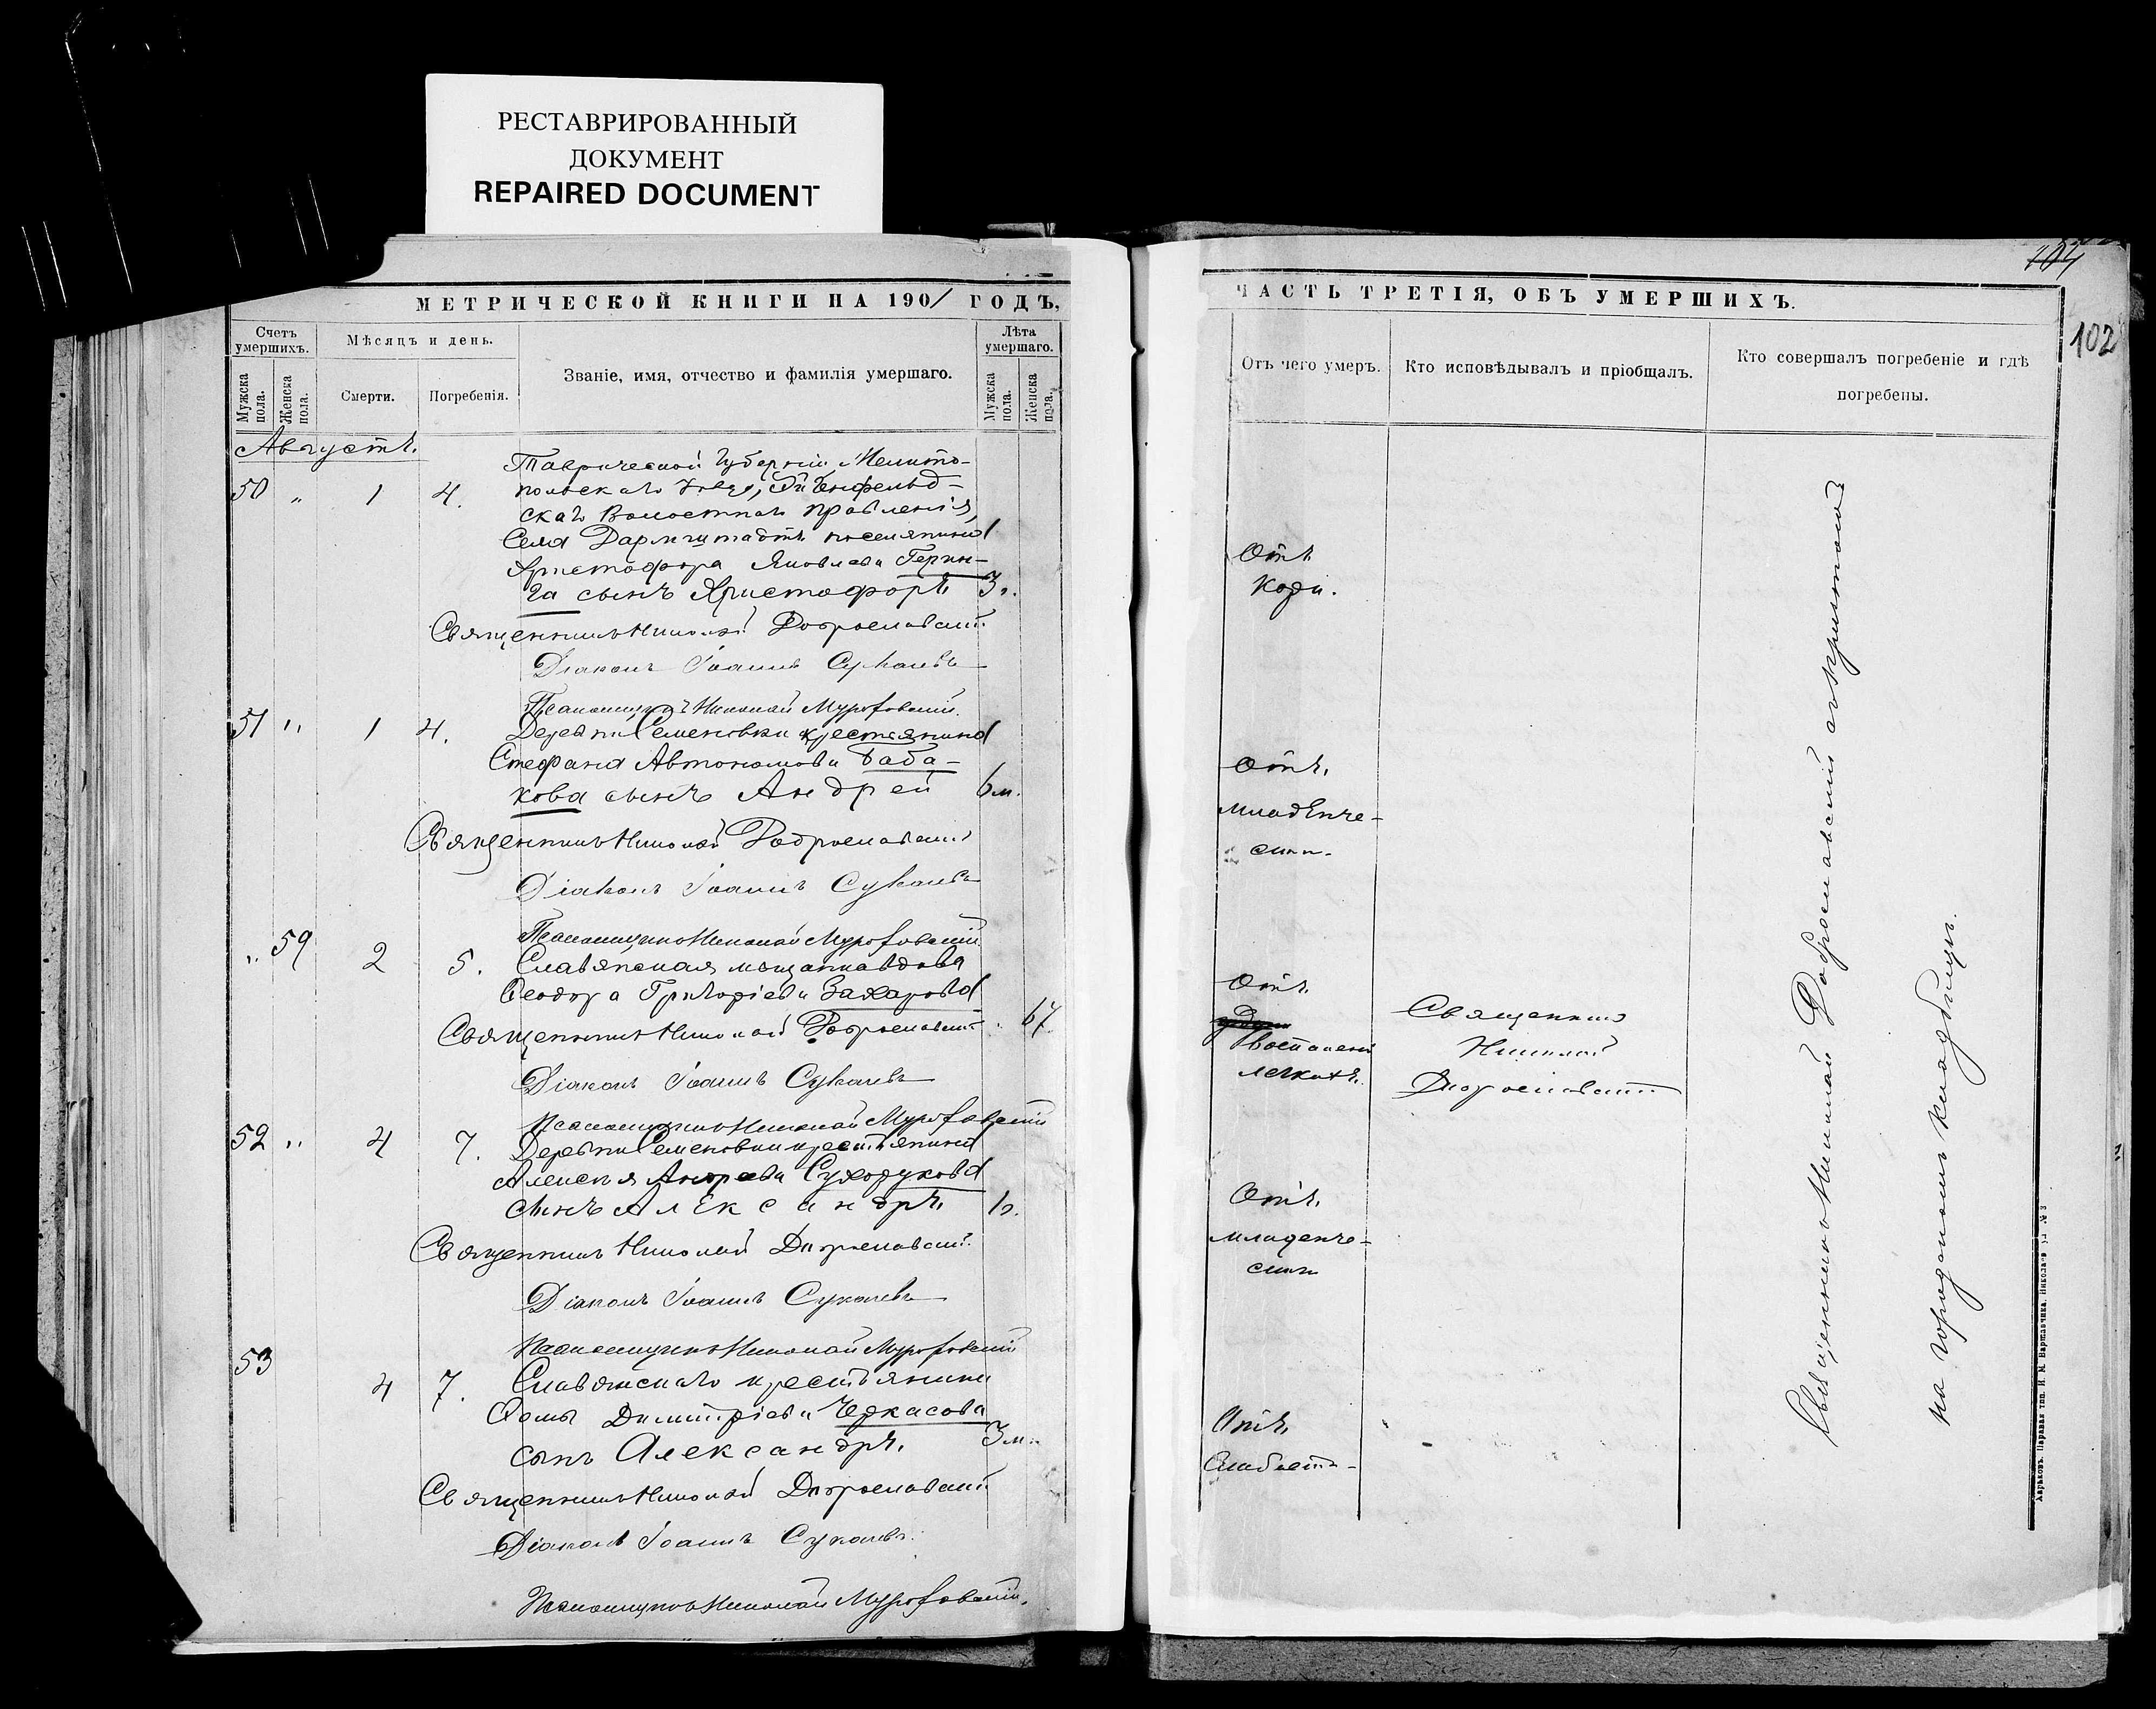 РЕСТАВРИРОВАННЫЙ
ДОКУМЕНТ
REPAIRED DOCUMENT
МЕТРИЧЕСКОЙ КНИГИ НА 1901 ГОДЪ,
Счетъ умершихъ.
Мужска пола.
Женска пола.
Мѣсяцъ и день.
Смерти.
Погребенія.
Званіе, имя, отчество и фамилія умершаго.
Лѣта умершаго.
Мужска пола.
Женска пола.
Августъ.
50 " 1 4.
Таврической Губерніи Мелито-
польскаго
Волостнаго правленія,
Села Дармштадтъ поселянина
Христофора Яковлева Герин-
га сынъ Христофоръ 3г.
Священникъ Николай Доброславскій
Діаконъ Іоаннъ Сукачевъ
Псаломщикъ Николай
51 " 1 4.
Деревни Семеновки крестьянина
Стефана Автономова Баба-
кова сынъ Андрей 6м.
Священникъ Николай Доброславскій
Діаконъ Іоаннъ Сукачевъ
Псаломщикъ Николай
" 59 2 5.
Славянская мѣщанка вдова
Ѳеодора Григоріева Захарова
67
Священникъ Николай Доброславскій
Діаконъ Іоаннъ Сукачевъ
Псаломщикъ Николай
52 " 4 7.
Деревни Семеновки крестьянина
Алексѣя Андреева Сухорукова
сынъ Александръ 1г.
Священникъ Николай Доброславскій
Діаконъ Іоаннъ Сукачевъ
Псаломщикъ Николай
53 4 7.
Славянскаго крестьянина
Ѳомы Димитріева Черкасова
сынъ Александръ. 3м.
Священникъ Николай Доброславскій
Діаконъ Іоаннъ Сукачевъ
Псаломщикъ Николай
104
102
ЧАСТЬ ТРЕТІЯ, ОБЪ УМЕРШИХЪ.
Отъ чего умеръ.
Кто исповѣдывалъ и пріобщалъ.
Кто совершалъ погребеніе и гдѣ
погребены.
Отъ
кори.
Отъ
младенче-
ской
Отъ
легкихъ.
Священникъ
Николай
Доброславскій
Отъ
младенче-
ской
Отъ
Священникъ Николай Доброславскій съ причтомъ
на городскомъ кладбищѣ.
Харьковъ. Паровая тип. И. М. Варшавчика.